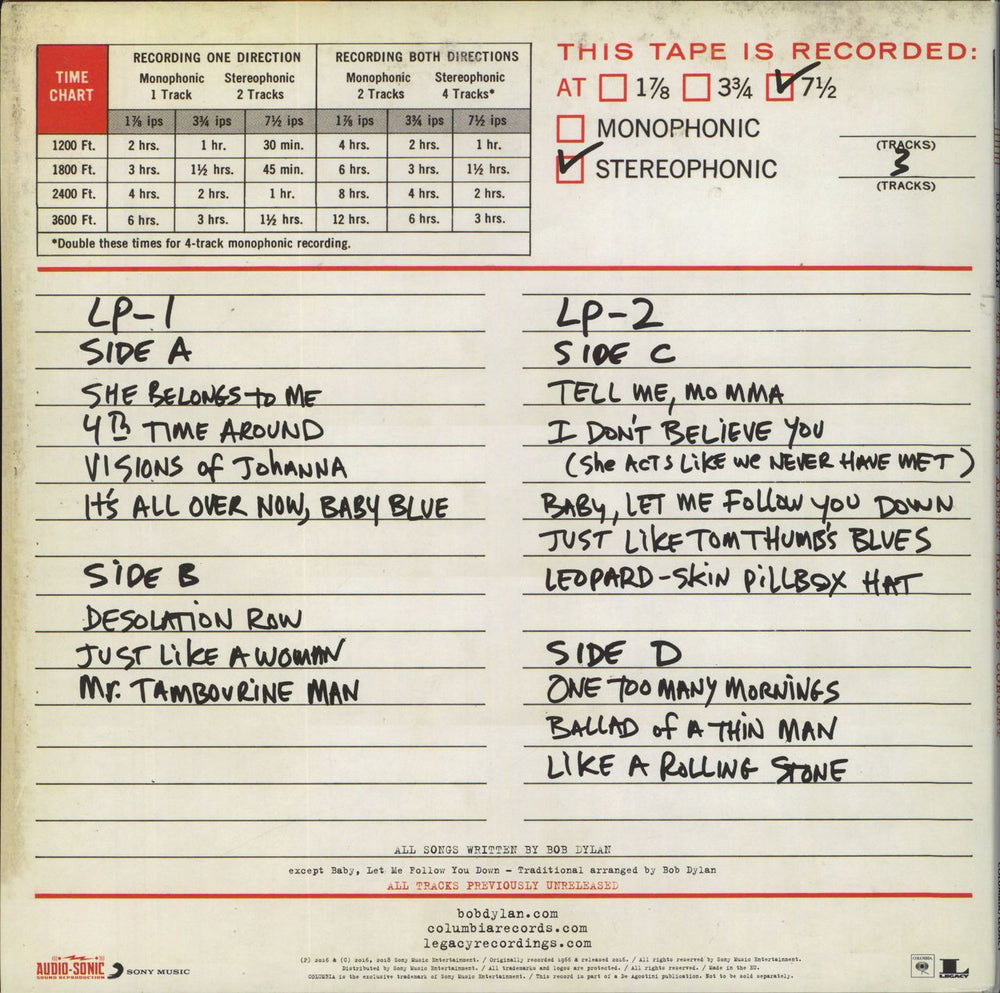 TIME CHART
RECORDING ONE DIRECTION
RECORDING BOTH DIRECTIONS
Monophonic 1 Track
Stereophonic 2 Tracks
Monophonic 2 Tracks
Stereophonic 4 Tracks*
1⅞ ips 3¾ ips 7½ ips 1⅞ ips 3¾ ips 7½ ips
1200 Ft. 2 hrs. 1 hr. 30 min. 4 hrs. 2 hrs. 1 hr.
1800 Ft. 3 hrs. 1½ hrs. 45 min. 6 hrs. 3 hrs. 1½ hrs.
2400 Ft. 4 hrs. 2 hrs. 1 hr. 8 hrs. 4 hrs. 2 hrs.
3600 Ft. 6 hrs. 3 hrs. 1½ hrs. 12 hrs. 6 hrs. 3 hrs.
*Double these times for 4-track monophonic recording.
THIS TAPE IS RECORDED:
AT 1⅞ 3¾ 7½
MONOPHONIC
(TRACKS)
STEREOPHONIC 3
(TRACKS)
LP-1
SIDE A
SHE BELONGS to ME
4Th TIME AROUND
VISIONS of JohANNA
It's ALL OVER NOW, BABY BLUE
SiDE B
DESOLATION ROW
JUST LIKE A WOMAN
Mr. TAMBOURINE MAN
LP-2
SIDE C
TELL ME, MOMMA
I DON'T BELIEVE YOU
(She ActS LiKE we NEVER HAVE MET)
BABY, LET ME Follow you DOWN
JUST LIKE TOM THUMB'S BLUES
LEOPARD-SKIN PILLBOX HAT
SIDE D
ONE TOO MANY MORNINGS
BALLAD of A THIN MAN
LIKE A ROLLING STONE
ALL SONGS WRITTEN BY BOB DYLAN
except Baby, Let Me Follow You Down - Traditional arranged by Bob Dylan
ALL TRACKS PREVIOUSLY UNRELEASED
bobdylan.com
columbiarecords.com
legacyrecordings.com
AUDIO-SONIC
SOUND REPRODUCTION
SONY MUSIC
(P) 2016 & (C) 2016, 2018 Sony Music Entertainment. / Originally recorded 1966 & released 2016. / All rights reserved by Sony Music Entertainment.
Distributed by Sony Music Entertainment. / All trademarks and logos are protected. / All rights reserved. / Made in the EU.
COLUMBIA is the exclusive trademark of Sony Music Entertainment. / This record is part of a De Agostini publication. Not to be sold separately.
COLUMBIA
LEGACY